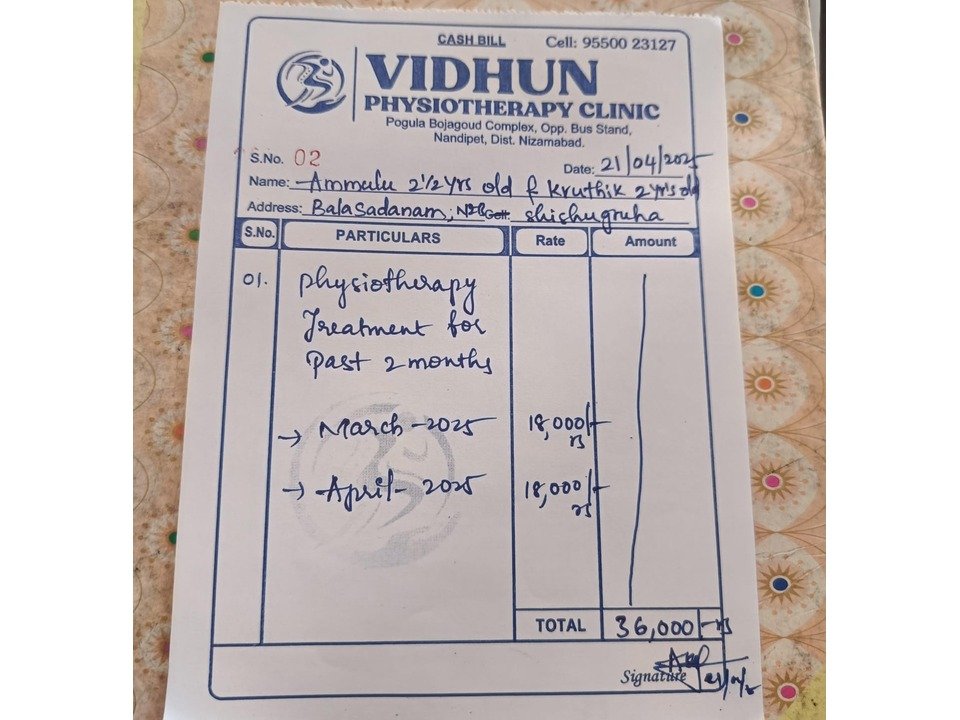 CASH BILL Cell: 95500 23127
VIDHUN
PHYSIOTHERAPY CLINIC
Pogula Bojagoud Complex, Opp. Bus Stand,
Nandipet, Dist. Nizamabad.
S.No. 02 Date: 21/04/2025
Name: Ammulu 2½ yrs old & Kruthik 2 yr's old
Address: BalaSadanam, NZB shishugruha
S.No. PARTICULARS Rate Amount
01. Physiotherapy
Treatment for
Past 2 months
→ March - 2025 18,000/- rs
→ April - 2025 18,000/- rs
TOTAL 36,000/- rs
Signature